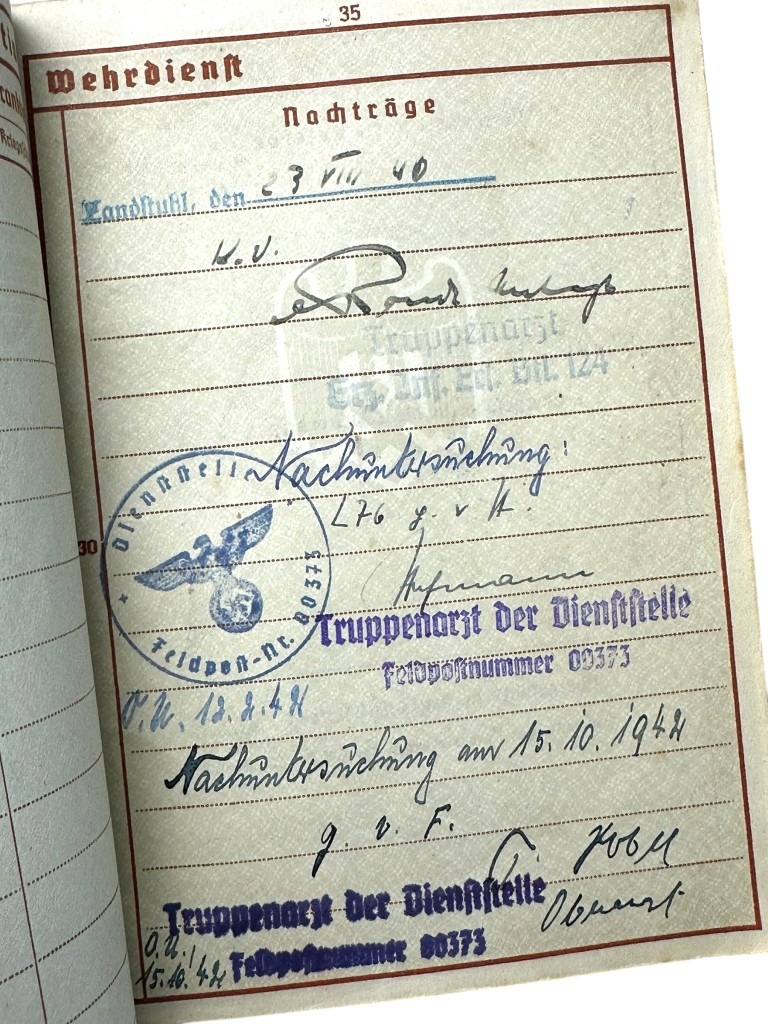 35
Wehrdienst
Nachträge
Landstuhl, den 23 VIII 40
k.v.
Truppenarzt
Ers. Btl. 124
Nachuntersuchung:
L76 g. v H.
Dienststelle
Feldpost-Nr. 00373
30
Hofmann
Truppenarzt der Dienststelle
Feldpostnummer 00373
O.U. 12.2.42
Nachuntersuchung am 15.10.1942
g. v. F.
Truppenarzt der Dienststelle
Feldpostnummer 00373
O.U.,
15.10.42